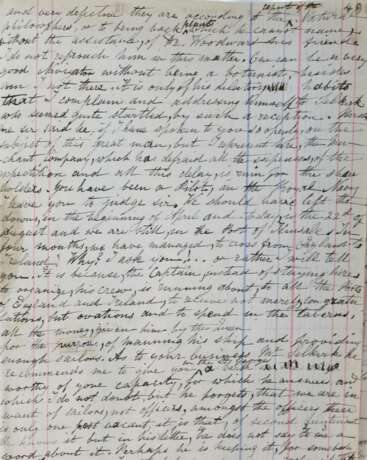 report of the 48
and very defective they are according to the Natural
philosophers, or to bring back plants which he cannot name
without the assistance of Dr. Woodward his friend
I do not reproach him in this matter. One can be a very
good without being a botanist, besides
even not there it is only of his desertory habits
that I complain and addressing himself to Selkirk
who seemed quite startled by such a reception. Pardon
me sir said he, if I have spoken to you so openly, on the
subject of this great man, but I represent here, the mer-
chant company, which has defraid all the expenses, of the
expedition and all this delay, is ruin for the share
holders. You have been a Pilot, in the Royal Navy
I leave you to judge sir, he should have left the
downs, in the beginning of April and today, is the 22nd of
August and we are still in the Port of Kinsale in
four months, we have managed, to cross from England to
Ireland. Why? I ask you? ... or rather I will tell
you. It is because, the Captain, instead of staying here
to organize, his crew, is running about, to all the Ports
of England and Ireland, to receive not merely, con gratu
lations, but ovations and to spend in the taverns,
all the money, given him by the
for the purpose, of manning his ship and providing
enough sailors. As to your business Mr. Selkirk he
recommends me to give you, a berth
worthy of your capacity, for which he answers and
which I do not doubt, but he forgets, that we are in
want of sailors, not officers, amongst the officers there
is only one post vacant, it is that, of second lieutenant
He knows it but in his letter, he does not say to me a
word about it. Perhaps he is keeping it, for somebody